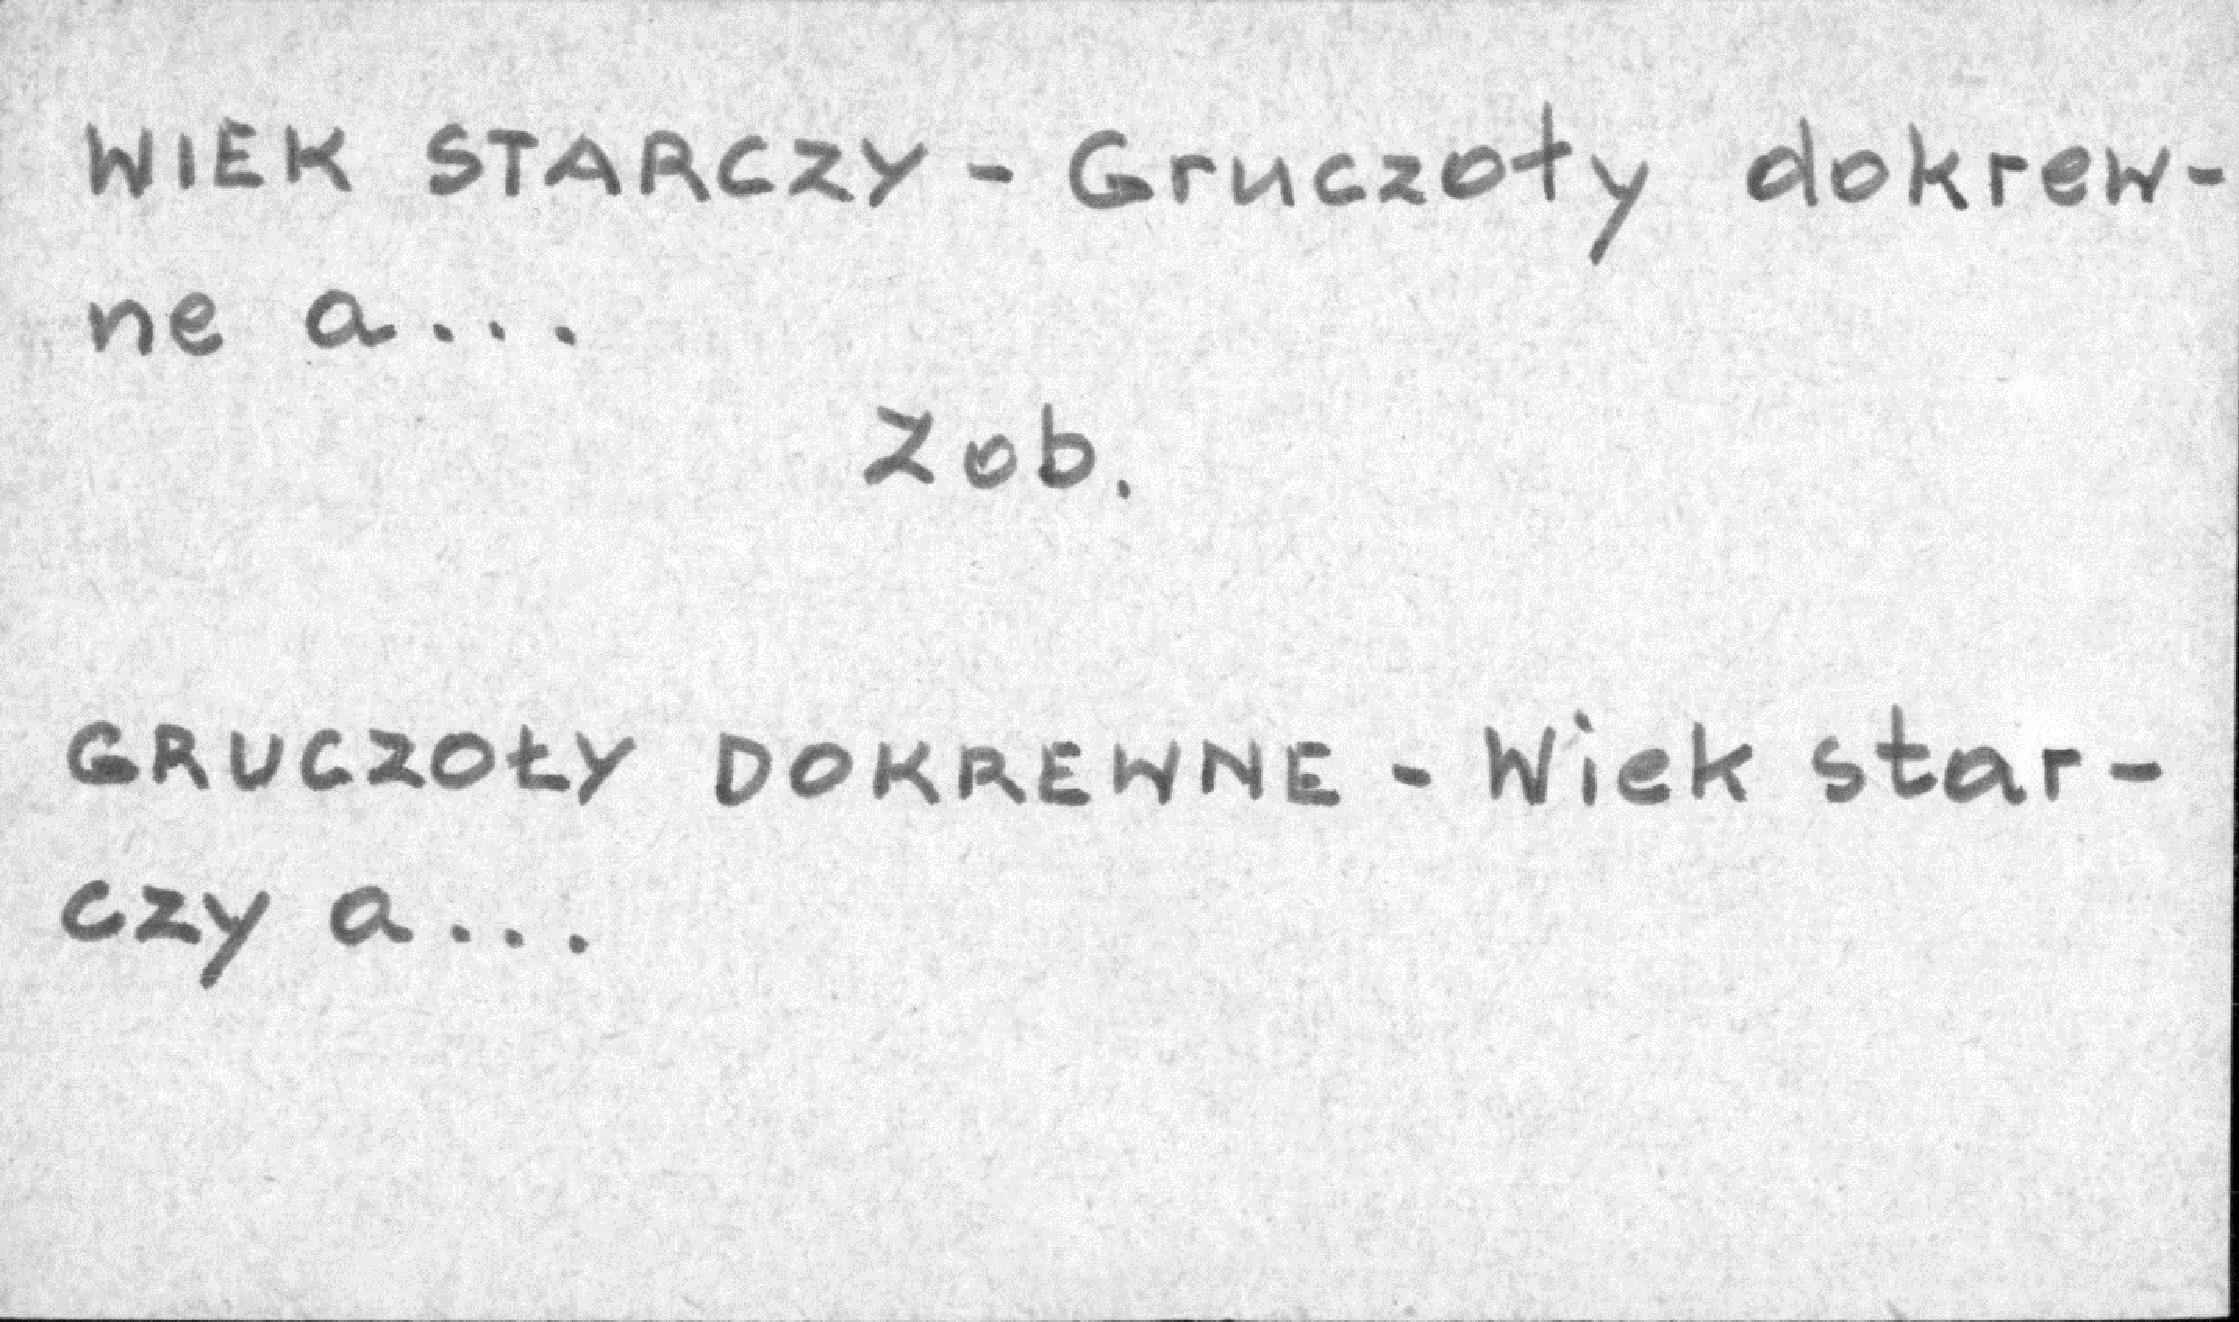 WIEK STARCZY - Gruczoły dokrew-
ne a...
Zob.
GRUCZOŁY DOKREWNE - Wiek star-
czy a...